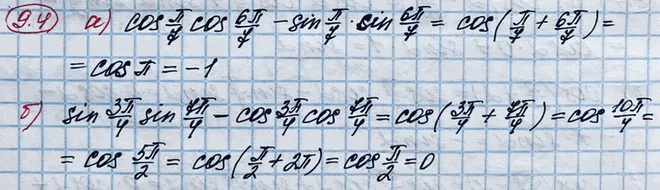 9.4 а) cos π/7 cos 6π/7 - sin π/7 · sin 6π/7 = cos(π/7 + 6π/7) =
= cos π = -1
б) sin 3π/4 sin 7π/4 - cos 3π/4 cos 7π/4 = cos(3π/4 + 7π/4) = cos 10π/4 =
= cos 5π/2 = cos(π/2 + 2π) = cos π/2 = 0